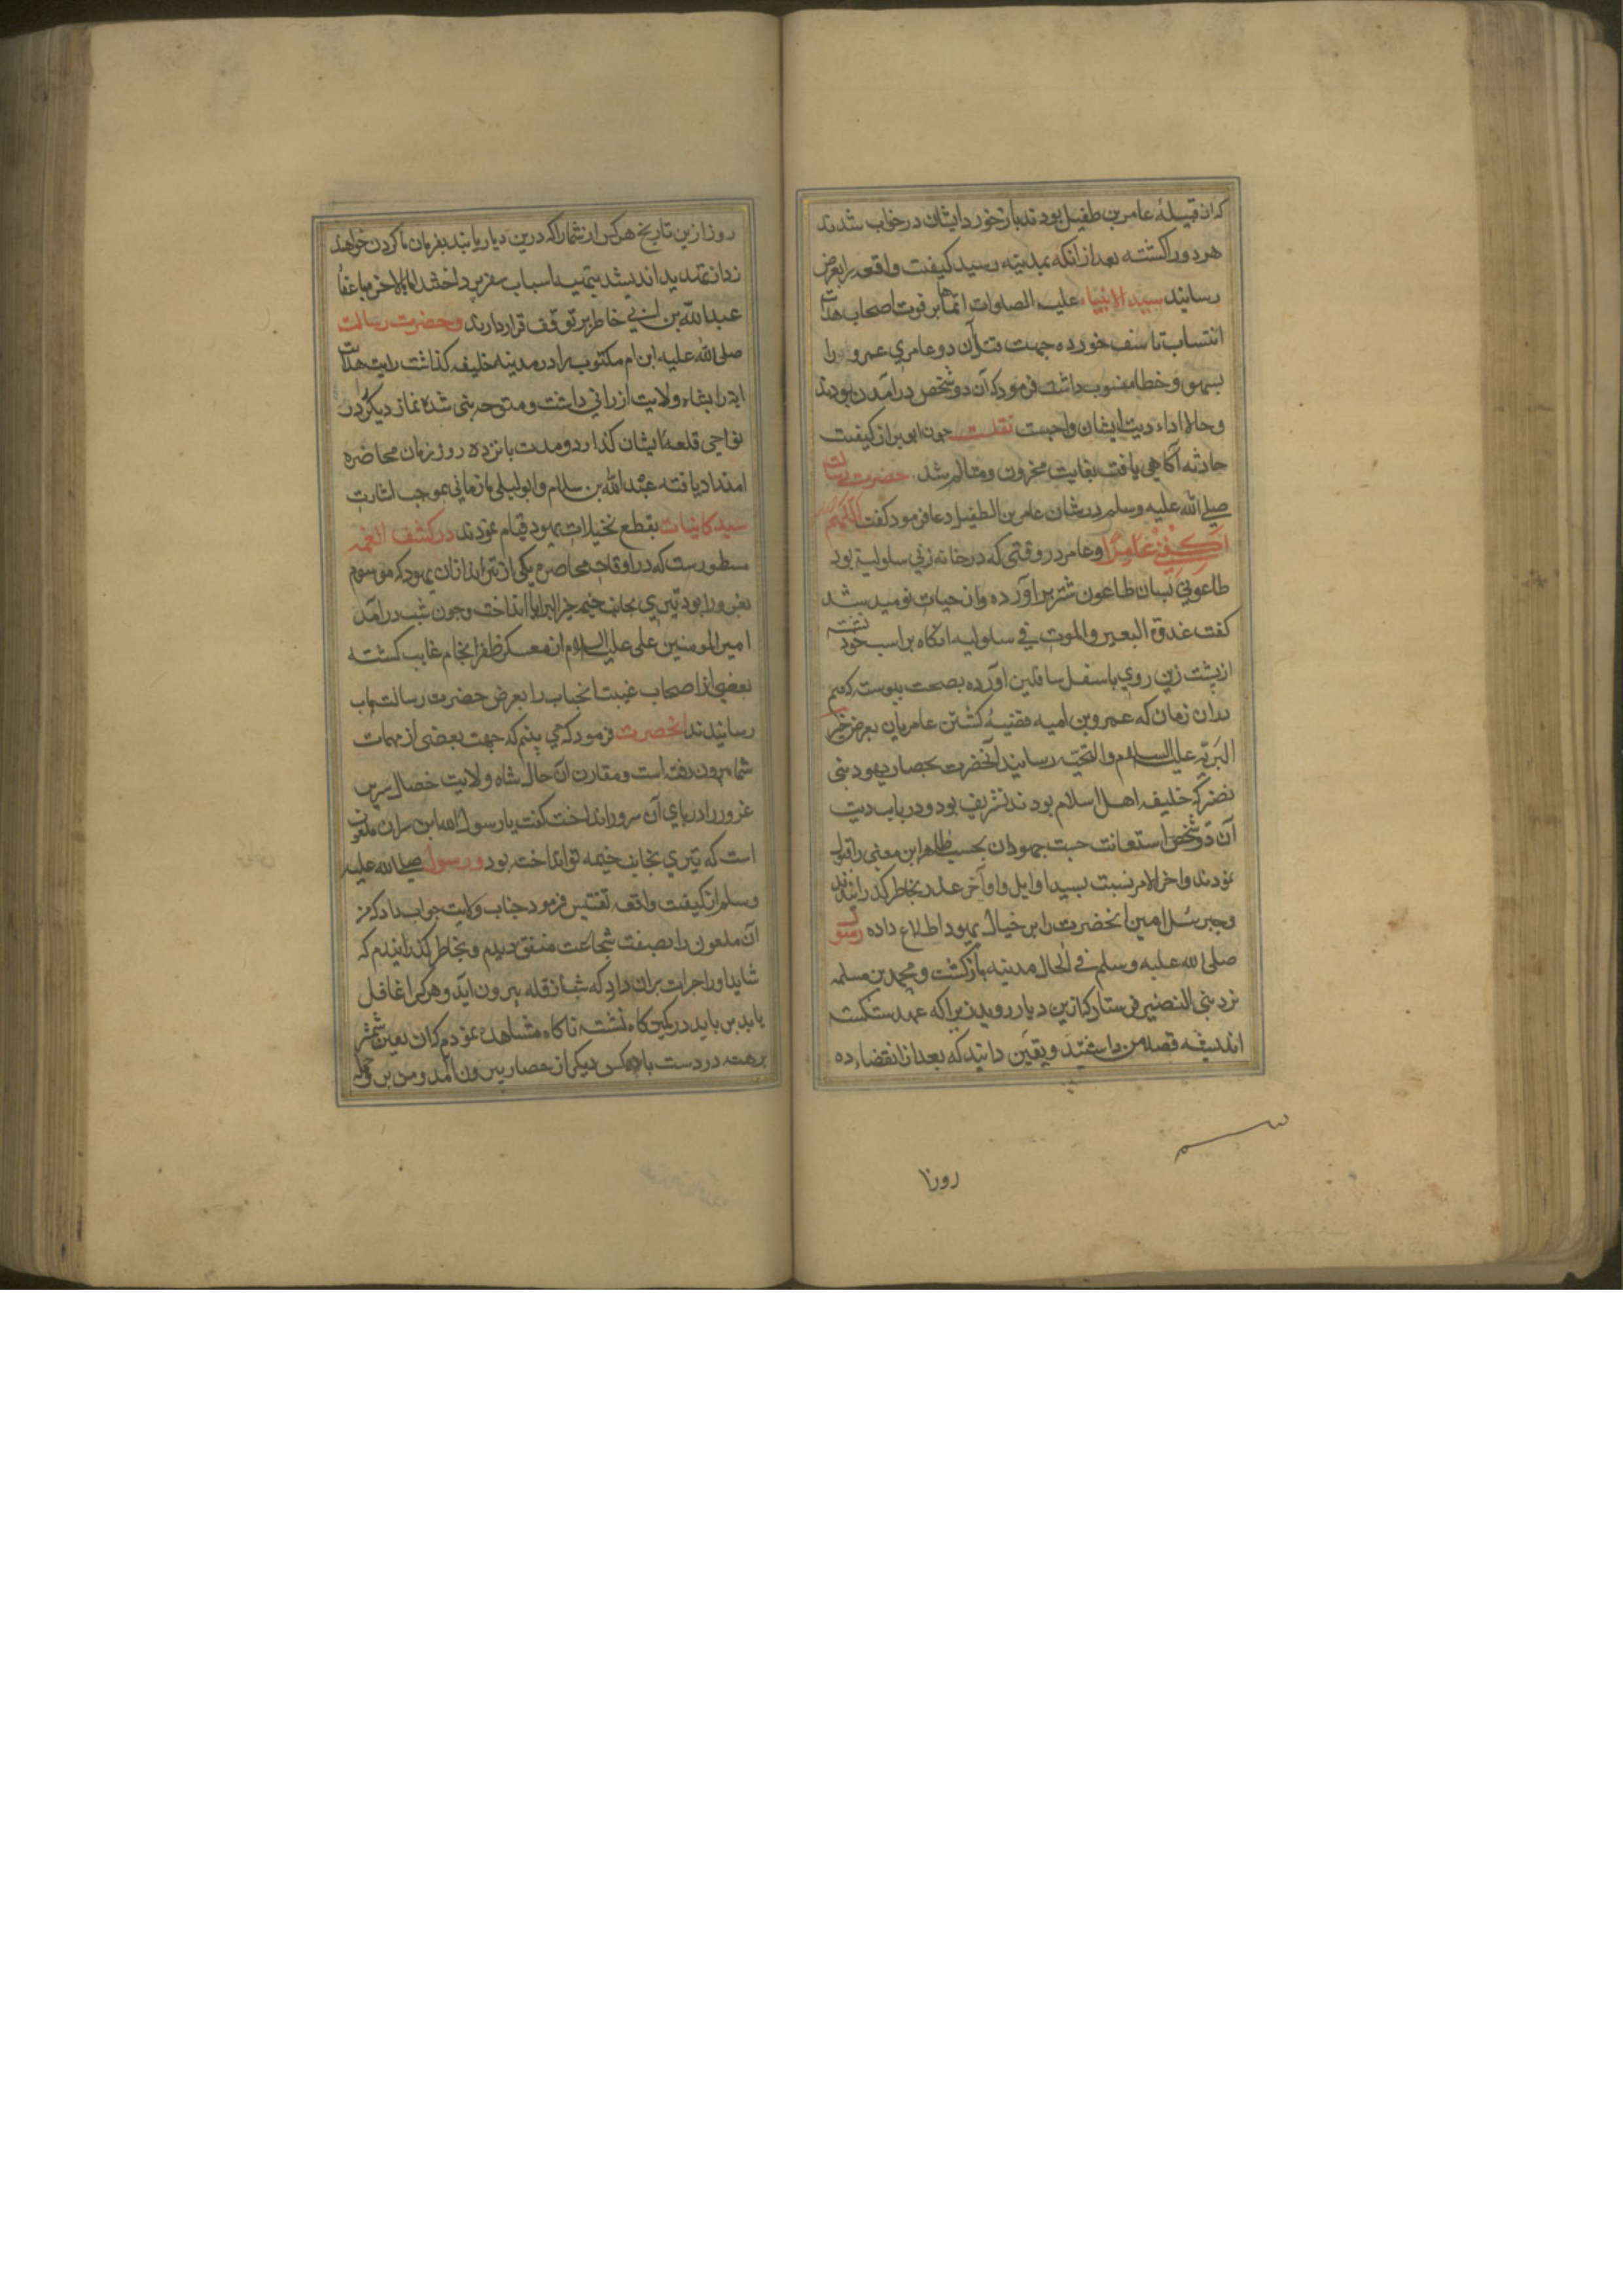 که از قبیلهٔ عامر بن طفیل بودند باز خورد ایشان در خواب شدند
هر دو را کشته بعد از انکه بمدینه رسید کیفیت واقعه را بعرض
رسانید سید الانبیاء علیه الصلوات اتمها بر فوت اصحاب هدایت
انتساب تاسف خورده جهت قتل آن دو عامری عمرو را
بسهو و خطا منسوب داشت فرمود که آن دو شخص در امدن بودند
وحالا اداء دیت ایشان واجبست نقلست چون ابو برا از کیفیت
حادثه آگاهی یافت بغایت محزون و متالم شد حضرت رسالت
صلی الله علیه وسلم در شان عامر بن الطفیل دعا فرمود کفت اللهم
اکفنی عامرا و عامر در وقتی که در خانه زنی سلولیة بود
طاعونی بسان طاعون شتر براورده و از حیات نومید شد
کفت غدة البعیر والموت فی سلولیه انکاه بر اسب خود نشسته
از پشت زین روی باسفل سافلین آورده بصحت پیوسته که هم
بدان زمان که عمرو بن امیه قضیهٔ کشتن عامریان بعرض خیر
البریه علیه السلام والتحیة رسانید آنحضرت بحصار یهود بنی
نضیر که خلیف اهل اسلام بودند تشریف بود و در باب دیت
آن دو شخص استعانت جست جهودان بحسب ظاهر این معنی را قبول
نمودند و اخر الامر نسبت بسید اوایل و اواخر غدر بخاطر گذرانیدند
وجبرئیل امین انحضرت را بر خیال یهود اطلاع داده رسول
صلی الله علیه وسلم فی الحال مدینه بازکشت و محمد بن مسلمه
نزد بنی النضیر فرستاد که ازین دیار روید زیرا که عهد شکسته
اندیشه قصد من داشتید و یقین دانید که بعد از انقضاء ده
روز از
روز ازین تاریخ هر کس از شما را که درین دیار یابند بفرمان ما کردن خواهند
زد از تهدید اندیشند بتهیه اسباب سفر پرداختند اما بالاخره باغوا
عبد الله بن ابی خاطر بر توقف قرار دارند و حضرت رسالت
صلی الله علیه ابن ام مکتوب را در مدینه خلیفه کذاشت رایت هدایت
ایة را بشاه ولایت ارزانی داشت و متوجه بنی شده نماز دیکر در
نواحی قلعه ایشان کذارد و مدت بانزده روز زمان محاضره
امتداد یافته عبد الله بن سلام و ابو لیلی مازنی بموجب اشارت
سید کاینات بقطع نخیلات یهود قیام نمودند در کشف الغمه
مسطورست که در اوقات محاصره یکی از تیراندازان یهود که موسوم
بغرورا بود تیری بجانب خیمه خیر البرایا انداخت و چون شب درآمد
امیر المومنین علی علیه السلام از معسکر ظفر انجام غایب کشته
بعضی از اصحاب غیبت انجناب را بعرض حضرت رسالت ماب
رسانیدند انحضرت فرمود که می بینم که جهت بعضی از مهمات
شما بیرون رفته است و مقارن ان حال شاه ولایت خصال سر
غرور را در پای آن سرور انداخت کفت یا رسول الله این سر ان ملعون
است که تیری بجانب خیمه تو انداخته بود و رسول صلی الله علیه
وسلم از کیفیت واقعه تفتیش فرمود جناب ولایت جواب داد که من
آن ملعون را بصفت شجاعت متفق دیدم و بخاطر گذرانیدم که
شاید او را جرات بران دارد که شب از قلعه بیرون آید و هر کرا غافل
یابد باید در کمینکاه نشسته ناکاه مشاهده نمودم که ان لعین شمشیر
برهنه در دست با کس دیکر از حصار بیرون آمد و من بر وی حمله